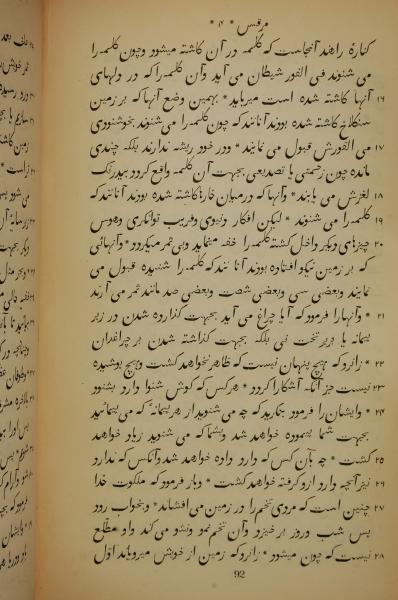 مرقس * ۴ *
کنارهٔ راهند آنجاست که کلمه در آن کاشته میشود وچون کلمه را
می شنوند فی الفور شیطان می آید وآن کلمه را که در دلهای
۱۶ آنها کاشته شده است میرباید * بهمین وضع آنها که بر زمین
سنکلاخ کاشته شده بودند آنانند که چون کلمه را می شنوند بخوشنودی
۱۷ فی الفورش قبول می نمایند * ودر خود ریشه ندارند بلکه چندی
مانده چون زحمتی یا تصدیعی بجهت آن کلمه واقع کردد بیدرنک
۱۸ لغزش می یابند * وآنها که درمیان خارها کاشته شده بودند آنانند که
۱۹ کلمه را می شنوند * لیکن افکار دنیوی وفریب توانکری وهوس
۲۰ چیزهای دیکر داخل کشته کلمه را خفه مینماید وبی ثمر میکردد * وآنهائی
که بر زمین نیکو افتاده بودند آنانند که کلمه را شنیده قبول می
نمایند وبعضی سی وبعضی شصت وبعضی صد مانند ثمر می آرند
۲۱ * وآنها را فرمود که آیا چراغ می آید بجهت کذارده شدن در زیر
پیمانه یا در زیر تخت نی بلکه بجهت کذاشته شدن بر چراغدان
۲۲ * زانرو که هیچ پنهان نیست که ظاهر نخواهد کشت وهیچ پوشیده
۲۳ نیست جز آنکه آشکارا کردد * هرکس که کوش شنوا دارد بشنود
۲۴ * وایشان را فرمود بنکرید که چه می شنوید از هر پیمانهٔ که می پیمائید
بجهت شما پیموده خواهد شد وبشما که می شنوید زیاد خواهد
۲۵ کشت * چه بآن کس که دارد داده خواهد شد وآنکس که ندارد
۲۶ نیز آنچه دارد ازو کرفته خواهد کشت * وباز فرمود که ملکوت خدا
۲۷ چنین است که مردی تخم را در زمین می افشاند * وبخواب رود
پس شب وروز بر خیزد وآن تخم نمو ونشو می کند واو مطلع
۲۸ نیست که چون میشود * زانرو که زمین از خویش میرویاند اوّل
92